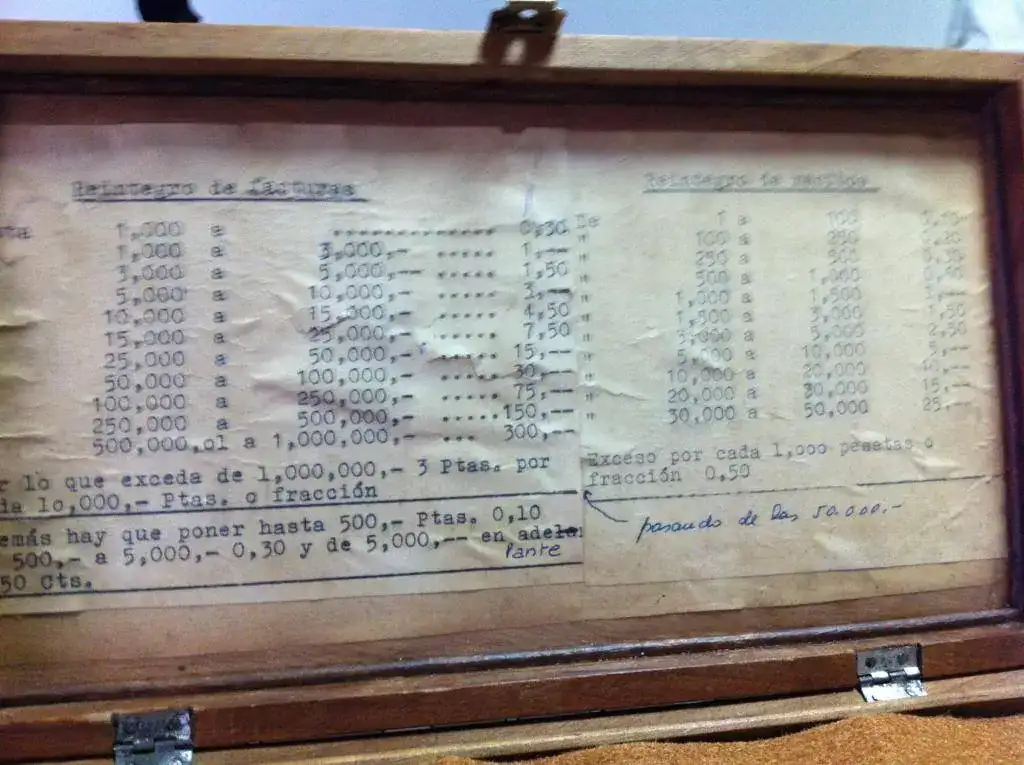 Reintegro de facturas
1,000 a ............... 0,30
1,000 a 3,000,- ..... 1,--
3,000 a 5,000,- ..... 1,50
5,000 a 10,000,- ..... 3,--
10,000 a 15,000,- ..... 4,50
15,000 a 25,000,- ..... 7,50
25,000 a 50,000,- ..... 15,--
50,000 a 100,000,- ..... 30,--
100,000 a 250,000,- ..... 75,--
250,000 a 500,000,- ..... 150,--
500,000,01 a 1,000,000,- ... 300,--
r lo que exceda de 1,000,000,- 3 Ptas. por
da 10,000,- Ptas. o fracción
emás hay que poner hasta 500,- Ptas. 0,10
500,- a 5,000,- 0,30 y de 5,000,-- en adelan
lante
50 cts.
Reintegro de recibos
De 1 a 100
" 100 a 250
" 250 a 500
" 500 a 1,000
" 1,000 a 1,500
" 1,500 a 3,000 1,50
" 3,000 a 5,000 2,50
" 5,000 a 10,000 5,--
" 10,000 a 20,000
" 20,000 a 30,000 15,--
" 30,000 a 50,000 25,--
Exceso por cada 1,000 pesetas o
fracción 0,50
pasando de las 50.000.-